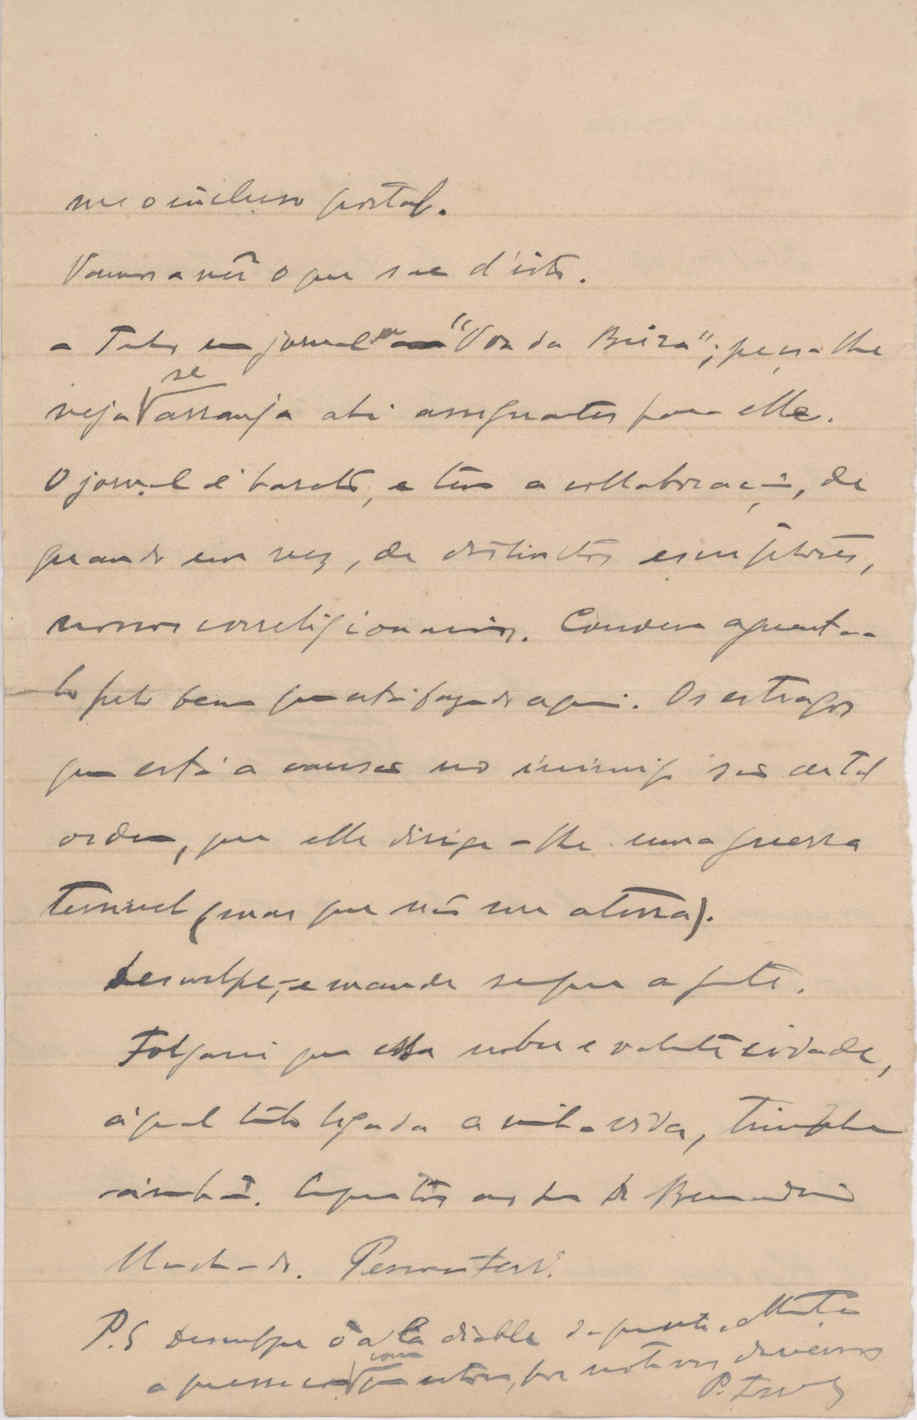 me o incluso postal.
Vamos a vêr o que sae d'isto.
- Tenho um jornal "Voz da Beira"; peço-lhe
veja se arranja ahi assignantes para elle.
O jornal é barato, e tem a collaboração, de
quando em vez, de distinctos escriptores,
nossos correligionarios. Convem aguenta-
lo pelo bem que está fazendo aqui. Os estragos
que está a causar no inimigo são de tal
ordem, que elle dirige-lhe uma guerra
terrivel (mas que não me aterra).
Desculpe, e mande sempre a
Folgarei que essa nobre e valente cidade,
á qual tenho ligada a minha vida, triumphe
ámanhã. Cumprimentos ao Dr Bernardino
Machado.
P.S Desculpe o á la diable
a pressa com que estou, por motivos diversos
P.